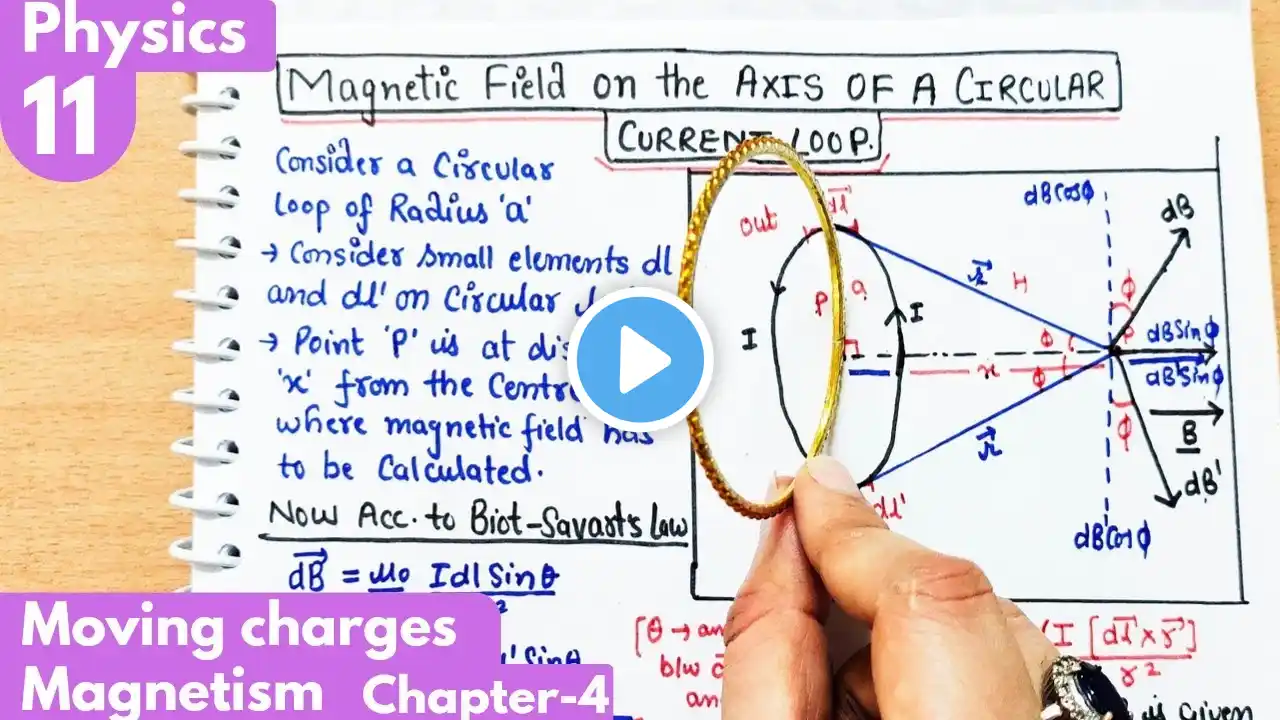 Physics
11
Magnetic Field on the AXIS OF A CIRCULAR
CURRENT LOOP.
Consider a Circular
loop of Radius 'a'
→ Consider small elements dl
and dl' on Circular
→ Point 'P' is at
'x' from the
where magnetic field has
to be Calculated.
Now Acc. to Biot-Savart's Law
dB = μ0 Idl Sinθ
2
l' Sinθ
out
dl
I
P
a
I
r
H
x
Φ
Φ
r
dl'
dBCosΦ
dB
Φ
P
dBSinΦ
dB'SinΦ
B
Φ
dB'
dB'CosΦ
[θ → an
b/w
an
I [dl × r]
r²
is Given
Moving charges
Magnetism Chapter-4